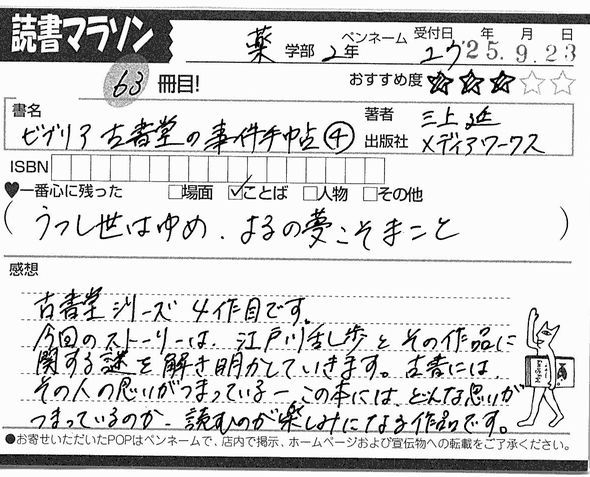 読書マラソン
薬 学部 2年 ペンネーム ユウ 受付日 '25.年9.月23日
63 冊目! おすすめ度 ★★★☆☆
書名 ビブリア古書堂の事件手帖④
著者 三上延
出版社 メディアワークス
ISBN
♥一番心に残った □場面 ☑ことば □人物 □その他
(うつし世はゆめ、よるの夢こそまこと)
感想
古書堂シリーズ4作目です。
今回のストーリーは、江戸川乱歩とその作品に
関する謎を解き明かしていきます。古書には、
その人の思いがつまっているー この本には、どんな思いが
つまっているのか、読むのが楽しみになる作品です。
●お寄せいただいたPOPはペンネームで、店内で掲示、ホームページおよび宣伝物への転載をご了承ください。